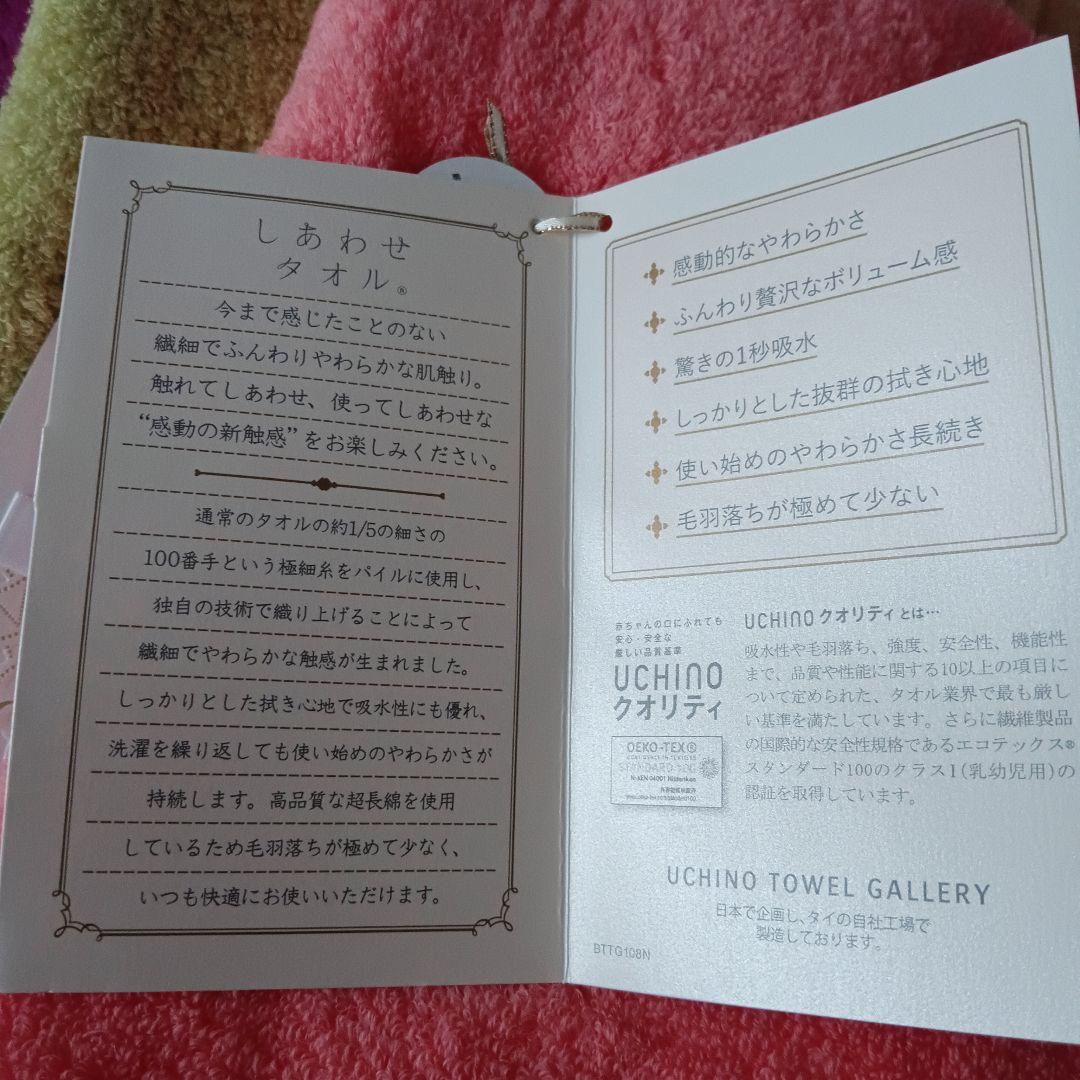 しあわせ
タオル®
今まで感じたことのない
繊細でふんわりやわらかな肌触り。
触れてしあわせ、使ってしあわせな
“感動の新触感”をお楽しみください。
通常のタオルの約1/5の細さの
100番手という極細糸をパイルに使用し、
独自の技術で織り上げることによって
繊細でやわらかな触感が生まれました。
しっかりとした拭き心地で吸水性にも優れ、
洗濯を繰り返しても使い始めのやわらかさが
持続します。高品質な超長綿を使用
しているため毛羽落ちが極めて少なく、
いつも快適にお使いいただけます。
感動的なやわらかさ
ふんわり贅沢なボリューム感
驚きの1秒吸水
しっかりとした抜群の拭き心地
使い始めのやわらかさ長続き
毛羽落ちが極めて少ない
赤ちゃんの口にふれても
安心・安全な
厳しい品質基準
UCHINO
クオリティ
OEKO-TEX®
STANDARD 100
N-KEN 04001 Nissenken
UCHINOクオリティとは…
吸水性や毛羽落ち、強度、安全性、機能性
まで、品質や性能に関する10以上の項目に
ついて定められた、タオル業界で最も厳し
い基準を満たしています。さらに繊維製品
の国際的な安全性規格であるエコテックス®
スタンダード100のクラスⅠ(乳幼児用)の
認証を取得しています。
UCHINO TOWEL GALLERY
日本で企画し、タイの自社工場で
製造しております。
BTTG108N